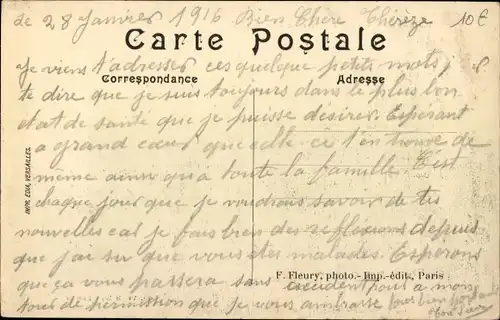 de 28 Janvier 1916 Bien Chère Thérèze
10€
Carte Postale
Je viens t'adresser ces quelque petits mots,
Correspondance
Adresse
te dire que je suis toujours dans le plus bon
état de santé que je puisse désirer. Espérant
a grand cœur que celle-ci t'en trouve de
même ainsi qu'à toute la famille. C'est
chaque jour que je voudrais savoir de tes
nouvelles car je fais bien des reflexions depuis
que j'ai su que vous êtes malades. Esperons
F. Fleury, photo.-Imp.-édit., Paris
que ça vous passera sans accident pour a mon
tour de permission que je vous embrasse tous bien
IMP. EDIA, VERSAILLES.